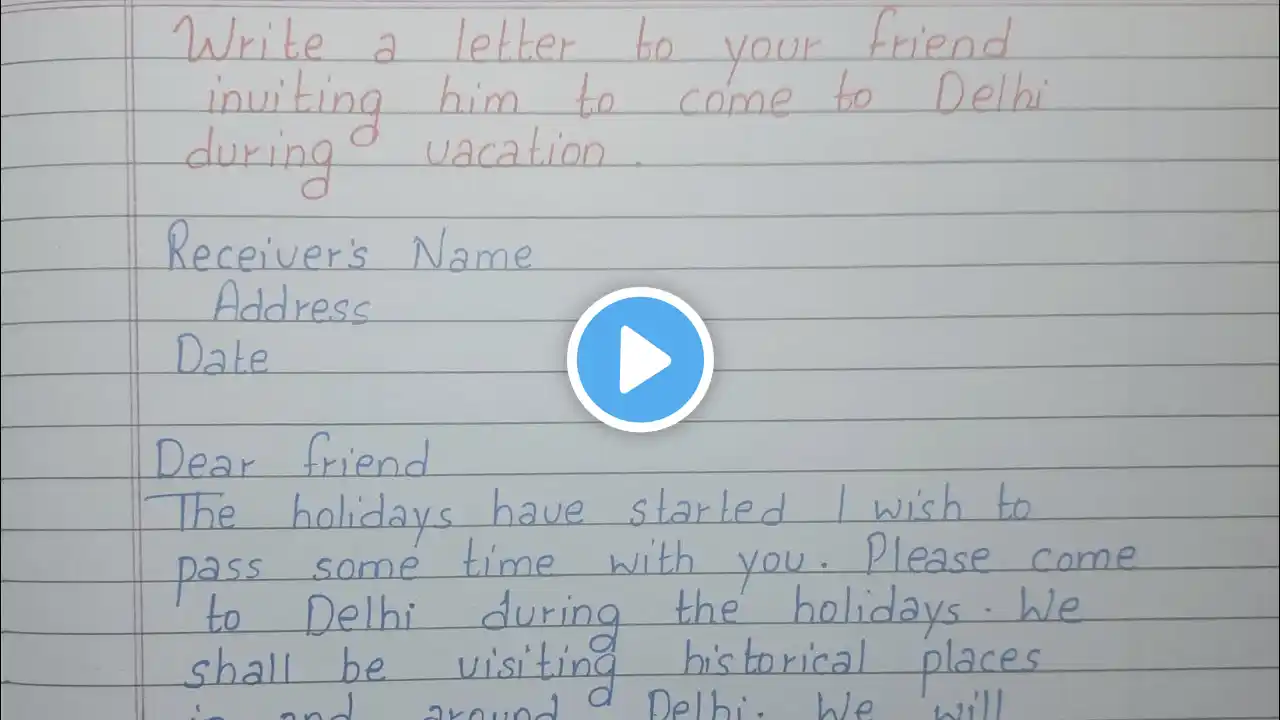 Write a letter to your friend
inviting him to come to Delhi
during vacation.
Receiver's Name
Address
Date
Dear friend
The holidays have started I wish to
pass some time with you. Please come
to Delhi during the holidays. We
shall be visiting historical places
in and around Delhi. We will